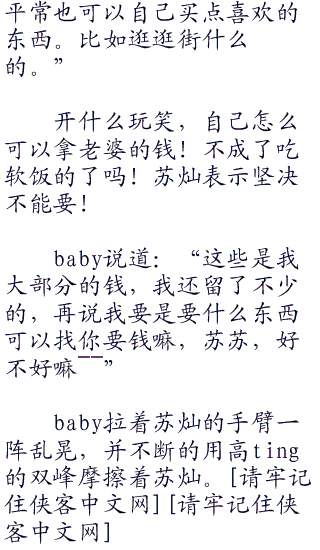 平常也可以自己买点喜欢的
东西。比如逛逛街什么
的。”
开什么玩笑，自己怎么
可以拿老婆的钱！不成了吃
软饭的了吗！苏灿表示坚决
不能要！
baby说道：“这些是我
大部分的钱，我还留了不少
的，再说我要是要什么东西
可以找你要钱嘛，苏苏，好
不好嘛~~”
baby拉着苏灿的手臂一
阵乱晃，并不断的用高ting
的双峰摩擦着苏灿。[请牢记
住侠客中文网][请牢记住侠
客中文网]